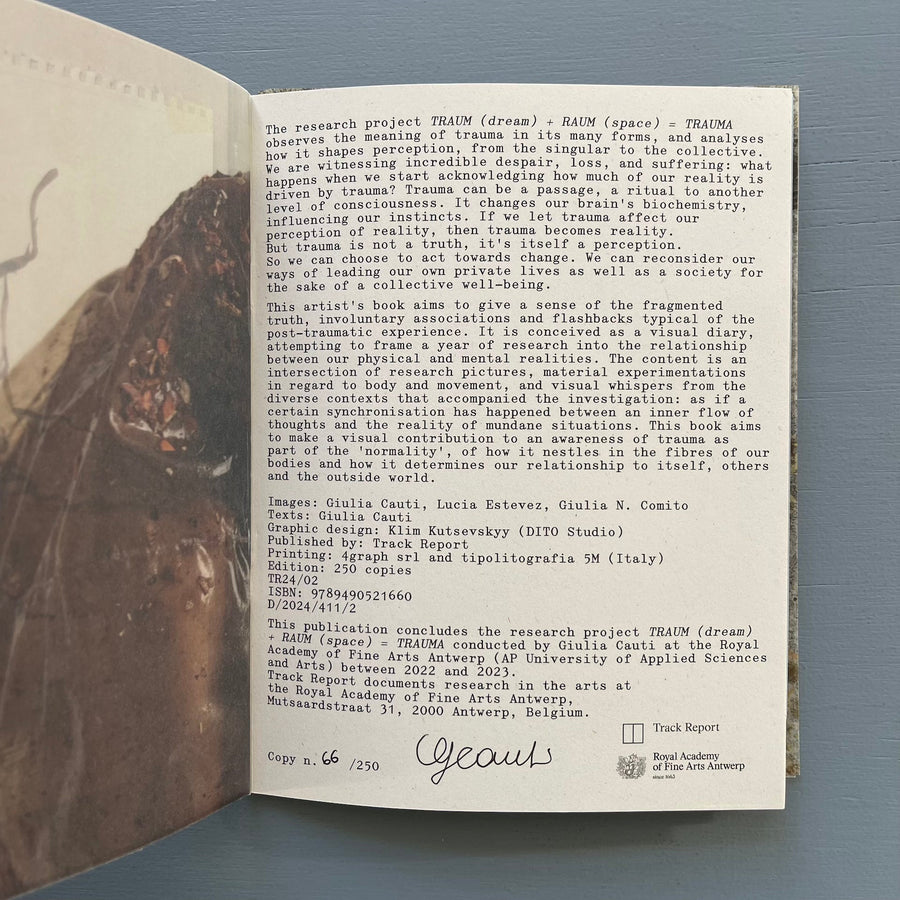 The research project TRAUM (dream) + RAUM (space) = TRAUMA
observes the meaning of trauma in its many forms, and analyses
how it shapes perception, from the singular to the collective.
We are witnessing incredible despair, loss, and suffering: what
happens when we start acknowledging how much of our reality is
driven by trauma? Trauma can be a passage, a ritual to another
level of consciousness. It changes our brain's biochemistry,
influencing our instincts. If we let trauma affect our
perception of reality, then trauma becomes reality.
But trauma is not a truth, it's itself a perception.
So we can choose to act towards change. We can reconsider our
ways of leading our own private lives as well as a society for
the sake of a collective well-being.
This artist's book aims to give a sense of the fragmented
truth, involuntary associations and flashbacks typical of the
post-traumatic experience. It is conceived as a visual diary,
attempting to frame a year of research into the relationship
between our physical and mental realities. The content is an
intersection of research pictures, material experimentations
in regard to body and movement, and visual whispers from the
diverse contexts that accompanied the investigation: as if a
certain synchronisation has happened between an inner flow of
thoughts and the reality of mundane situations. This book aims
to make a visual contribution to an awareness of trauma as
part of the 'normality', of how it nestles in the fibres of our
bodies and how it determines our relationship to itself, others
and the outside world.
Images: Giulia Cauti, Lucia Estevez, Giulia N. Comito
Texts: Giulia Cauti
Graphic design: Klim Kutsevskyy (DITO Studio)
Published by: Track Report
Printing: 4graph srl and tipolitografia 5M (Italy)
Edition: 250 copies
TR24/02
ISBN: 9789490521660
D/2024/411/2
This publication concludes the research project TRAUM (dream)
+ RAUM (space) = TRAUMA conducted by Giulia Cauti at the Royal
Academy of Fine Arts Antwerp (AP University of Applied Sciences
and Arts) between 2022 and 2023.
Track Report documents research in the arts at
the Royal Academy of Fine Arts Antwerp,
Mutsaardstraat 31, 2000 Antwerp, Belgium.
Copy n. 66 /250
Track Report
Royal Academy
of Fine Arts Antwerp
since 1663